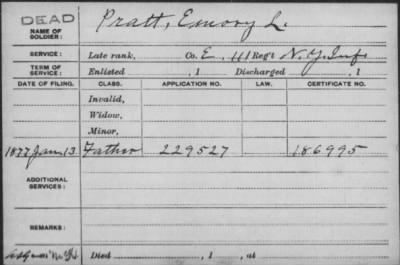 DEAD
NAME OF SOLDIER: Pratt, Emory L.
SERVICE: Late rank, Co. E, 111 Reg't N.Y. Inf.
TERM OF SERVICE: Enlisted , 1 Discharged , 1
DATE OF FILING. CLASS. APPLICATION NO. LAW. CERTIFICATE NO.
Invalid,
Widow,
Minor,
1877 Jan. 13 Father 229527 186995
ADDITIONAL SERVICES:
REMARKS:
Died , 1 , at